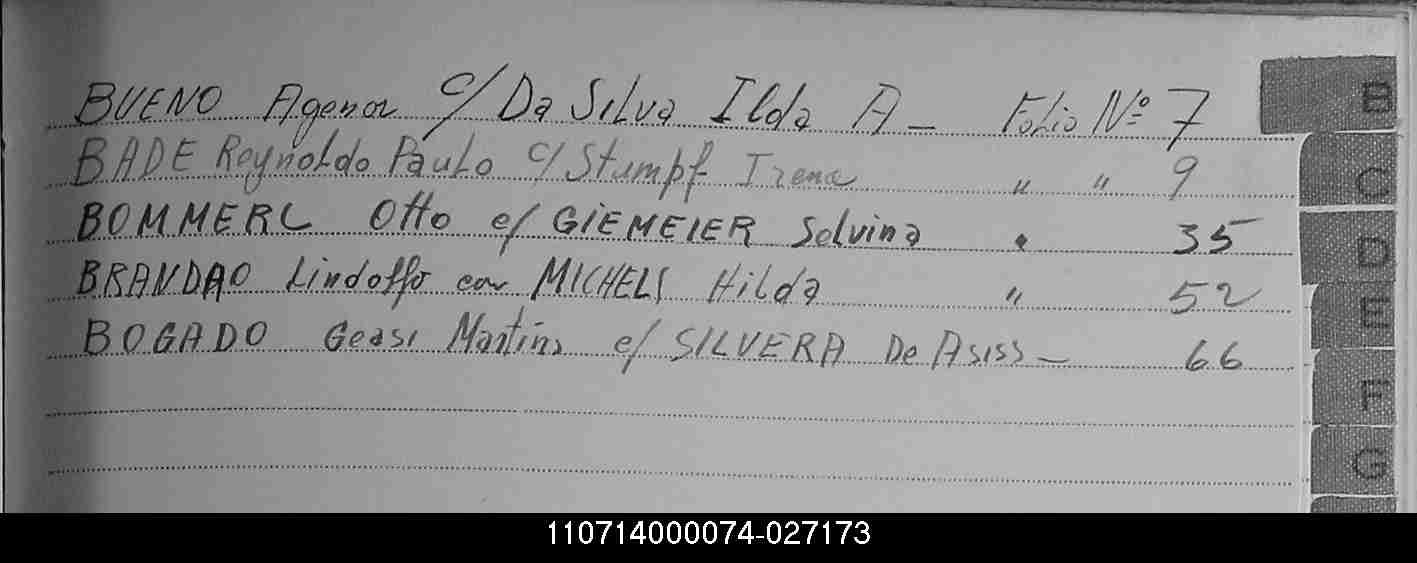 BUENO Agenor c/ Da Silva Ilda A — Folio Nº 7
BADE Reynoldo Paulo c/ Stumpf Irena " " 9
BOMMERL Otto c/ GIEMEIER Selvina " 35
BRANDAO Lindolfo con MICHELS Hilda " 52
BOGADO Geasi Martins c/ SILVERA De Asiss — 66
B
C
D
E
F
G
110714000074-027173